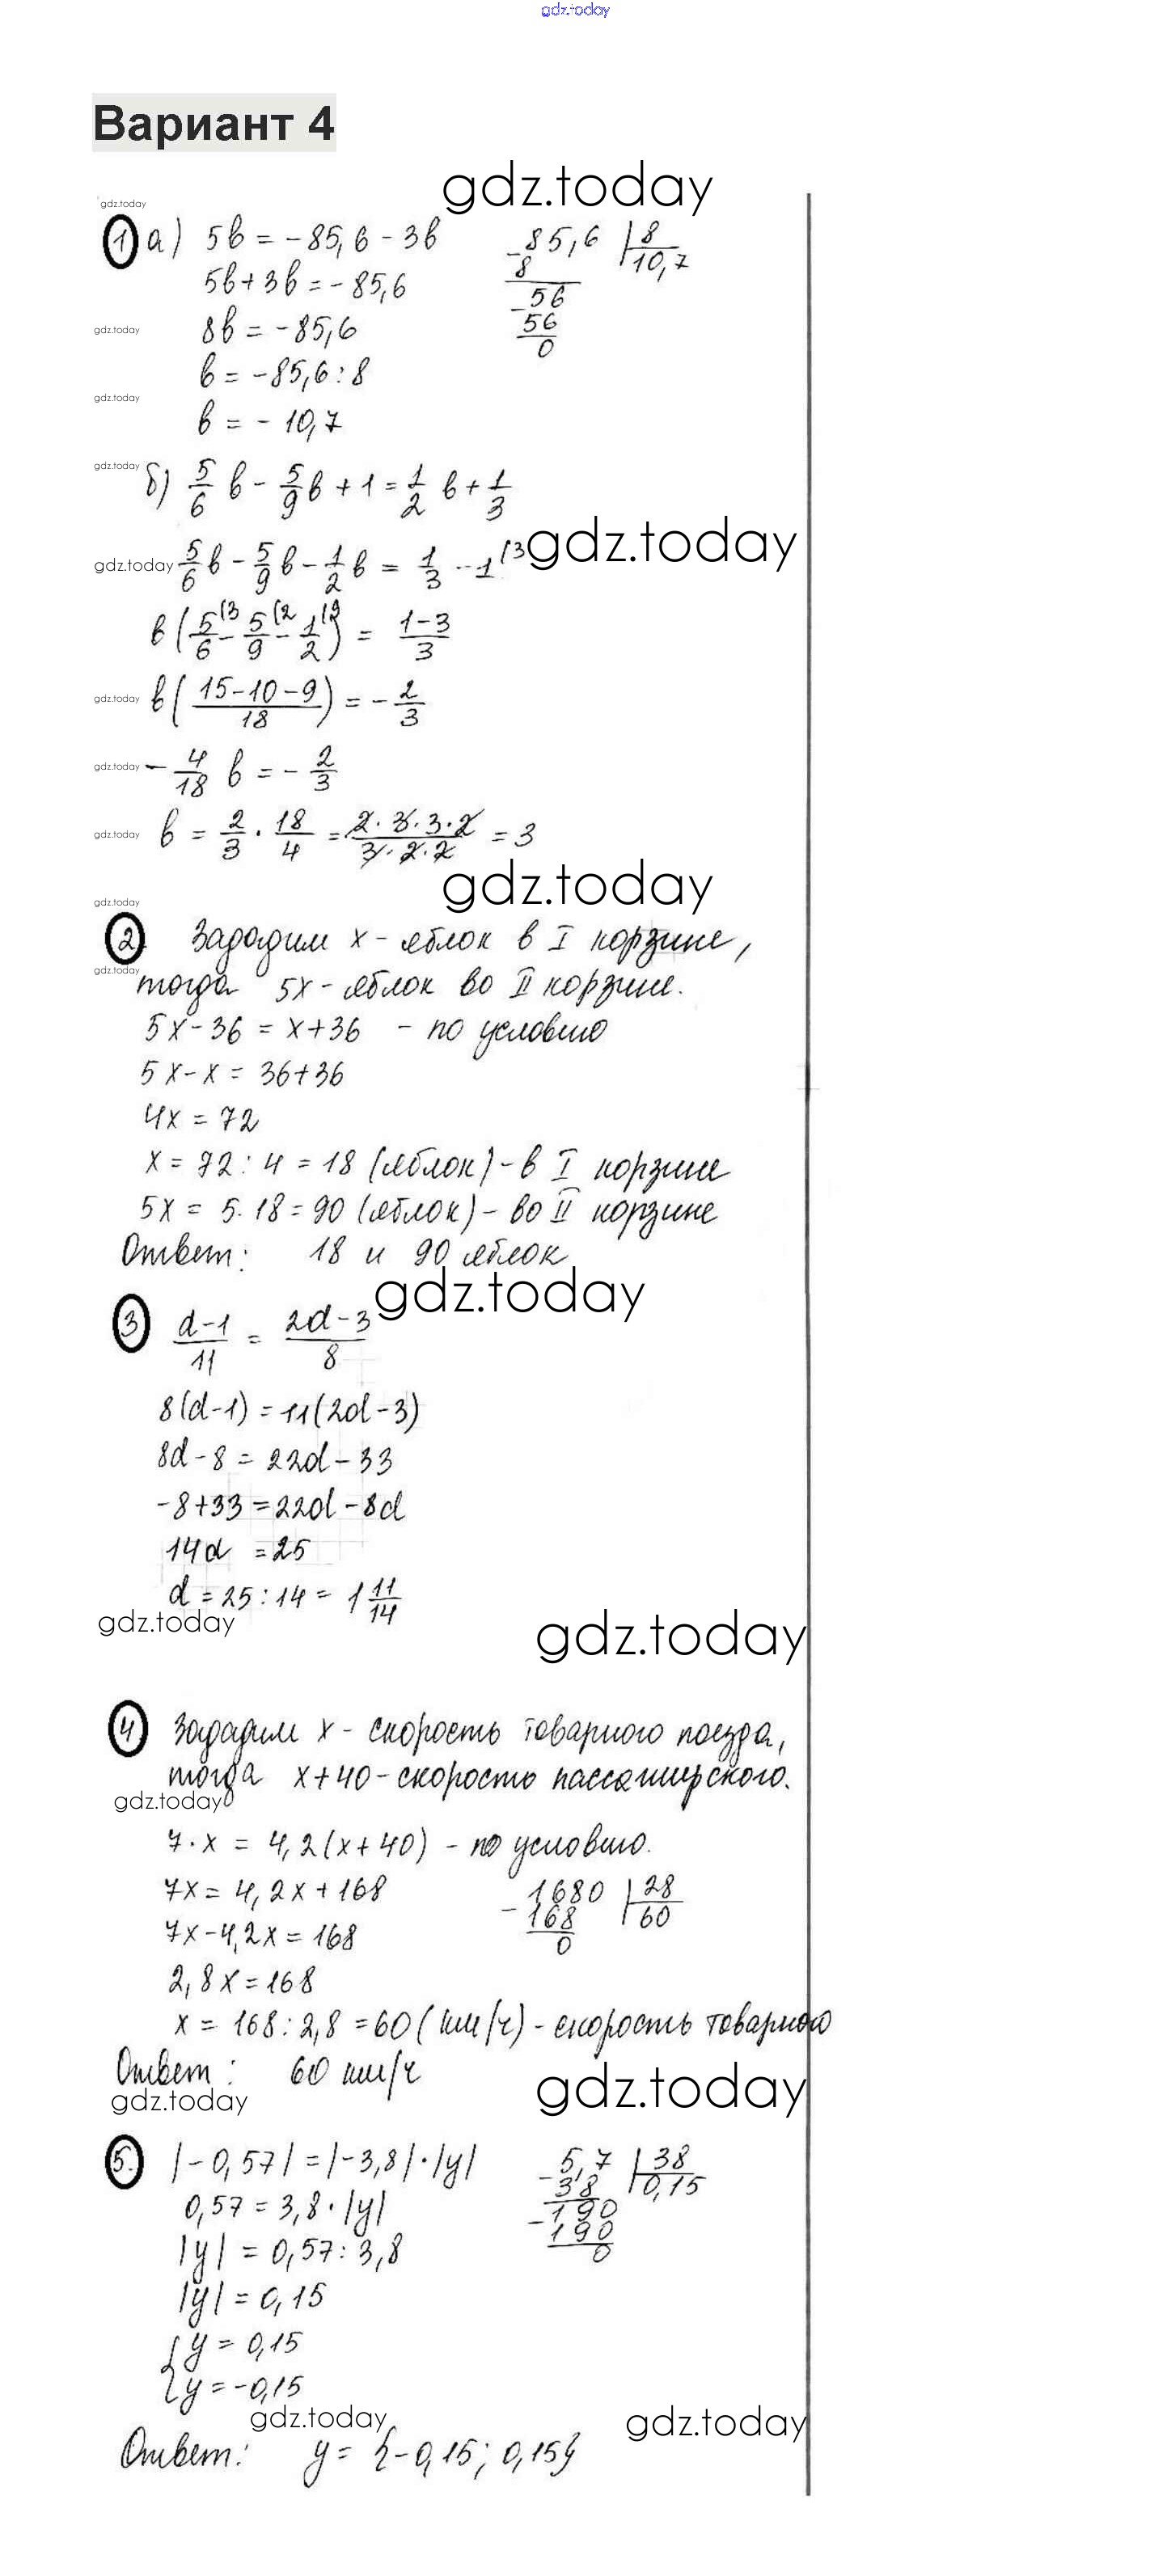 gdz.today
Вариант 4
gdz.today
gdz.today
1 а) 5b = -85,6 - 3b
5b + 3b = -85,6
gdz.today 8b = -85,6
b = -85,6 : 8
gdz.today
b = -10,7
-85,6 | 8
8 10,7
-56
56
0
gdz.today б) 5/6 b - 5/9 b + 1 = 1/2 b + 1/3
gdz.today 5/6 b - 5/9 b - 1/2 b = 1/3 - 1 (3
gdz.today
b (5/6 (3 - 5/9 (2 - 1/2 (9) = (1-3)/3
gdz.today b ((15-10-9)/18) = - 2/3
gdz.today - 4/18 b = - 2/3
gdz.today b = 2/3 · 18/4 = (2·3·3·2)/(3·2·2) = 3
gdz.today
gdz.today
2. Зададим x - яблок в I корзине,
gdz.today
тогда 5x - яблок во II корзине.
5x - 36 = x + 36 - по условию
5x - x = 36 + 36
4x = 72
x = 72 : 4 = 18 (яблок) - в I корзине
5x = 5 · 18 = 90 (яблок) - во II корзине
Ответ: 18 и 90 яблок
gdz.today
3 (d-1)/11 = (2d-3)/8
8(d-1) = 11(2d-3)
8d - 8 = 22d - 33
-8 + 33 = 22d - 8d
14d = 25
d = 25 : 14 = 1 11/14
gdz.today
gdz.today
4 Зададим x - скорость товарного поезда,
тогда x + 40 - скорость пассажирского.
gdz.today
7 · x = 4,2(x + 40) - по условию.
7x = 4,2x + 168
7x - 4,2x = 168
2,8x = 168
-1680 | 28
168 60
0
x = 168 : 2,8 = 60 (км/ч) - скорость товарного
Ответ: 60 км/ч
gdz.today
gdz.today
5. |-0,57| = |-3,8| · |y|
0,57 = 3,8 · |y|
|y| = 0,57 : 3,8
|y| = 0,15
{ y = 0,15
{ y = -0,15
-5,7 | 38
38 0,15
-190
190
0
gdz.today
gdz.today
Ответ: y = {-0,15; 0,15}